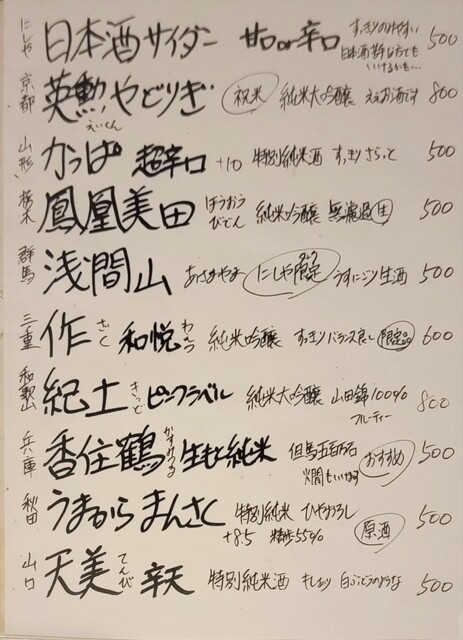 にしや 日本酒サイダー 甘口or辛口 すっきりのみやすい 500
日本酒苦手な方でも
いけるかも…
京都 英勲 やどりぎ 祝米 純米大吟醸 ええお酒です 800
えいくん
山形 かっぱ 超辛口 +10 特別純米酒 すっきりさらっと 500
栃木 鳳凰美田 ほうおうびでん 純米吟醸 無濾過生 500
群馬 浅間山 あさまやま にしや限定 うすにごり生酒 500
三重 作 さく 和悦 わえつ 純米吟醸 すっきりバランス良し 限定品 600
和歌山 紀土 きっど ピンクラベル 純米大吟醸 山田錦100% 800
フルーティー
兵庫 香住鶴 かすみつる 生もと純米 但馬五百万石 おすすめ 500
燗もいける
秋田 うまからまんさく 特別純米 ひやおろし 原酒 500
+8.5 精歩55%
山口 天美 てんび 辛天 特別純米酒 白ぶどうのような 500